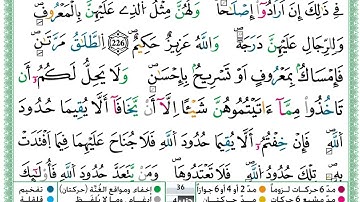 فِي ذَٰلِكَ إِنْ أَرَادُوٓا۟ إِصْلَٰحًا وَلَهُنَّ مِثْلُ ٱلذِے عَلَيْهِنَّ بِٱلْمَعْرُوفِ
وَلِلرِّجَالِ عَلَيْهِنَّ دَرَجَةٌ وَٱللَّهُ عَزِيزٌ حَكِيمٌ 226 ٱلطَّلَٰقُ مَرَّتَٰنِ
فَإِمْسَاكٌۢ بِمَعْرُوفٍ اَوْ تَسْرِيحٌۢ بِإِحْسَٰنٍ وَلَا يَحِلُّ لَكُمُۥٓ أَن
تَاخُذُوا۟ مِمَّآ ءَاتَيْتُمُوهُنَّ شَيْـًٔا اِلَّآ أَنْ يَّخَافَآ أَلَّا يُقِيمَا حُدُودَ
ٱللَّهِ فَإِنْ خِفْتُمُۥٓ أَلَّا يُقِيمَا حُدُودَ ٱللَّهِ فَلَا جُنَاحَ عَلَيْهِمَا فِيمَا ٱفْتَدَتْ
بِهِۦ تِلْكَ حُدُودُ ٱللَّهِ فَلَا تَعْتَدُوهَا وَمَنْ يَّتَعَدَّ حُدُودَ ٱللَّهِ فَأُو۟لَٰٓئِكَ
36
مدّ 6 حركات لزوماً مدّ 2 أو 4 أو 6 جوازاً إخفاء ومواقع الغُنّة (حركتان) تفخيم
مدّ مشبع 6 حركات مدّ حركتان إدغام وما لا يُلفظ قلقلة